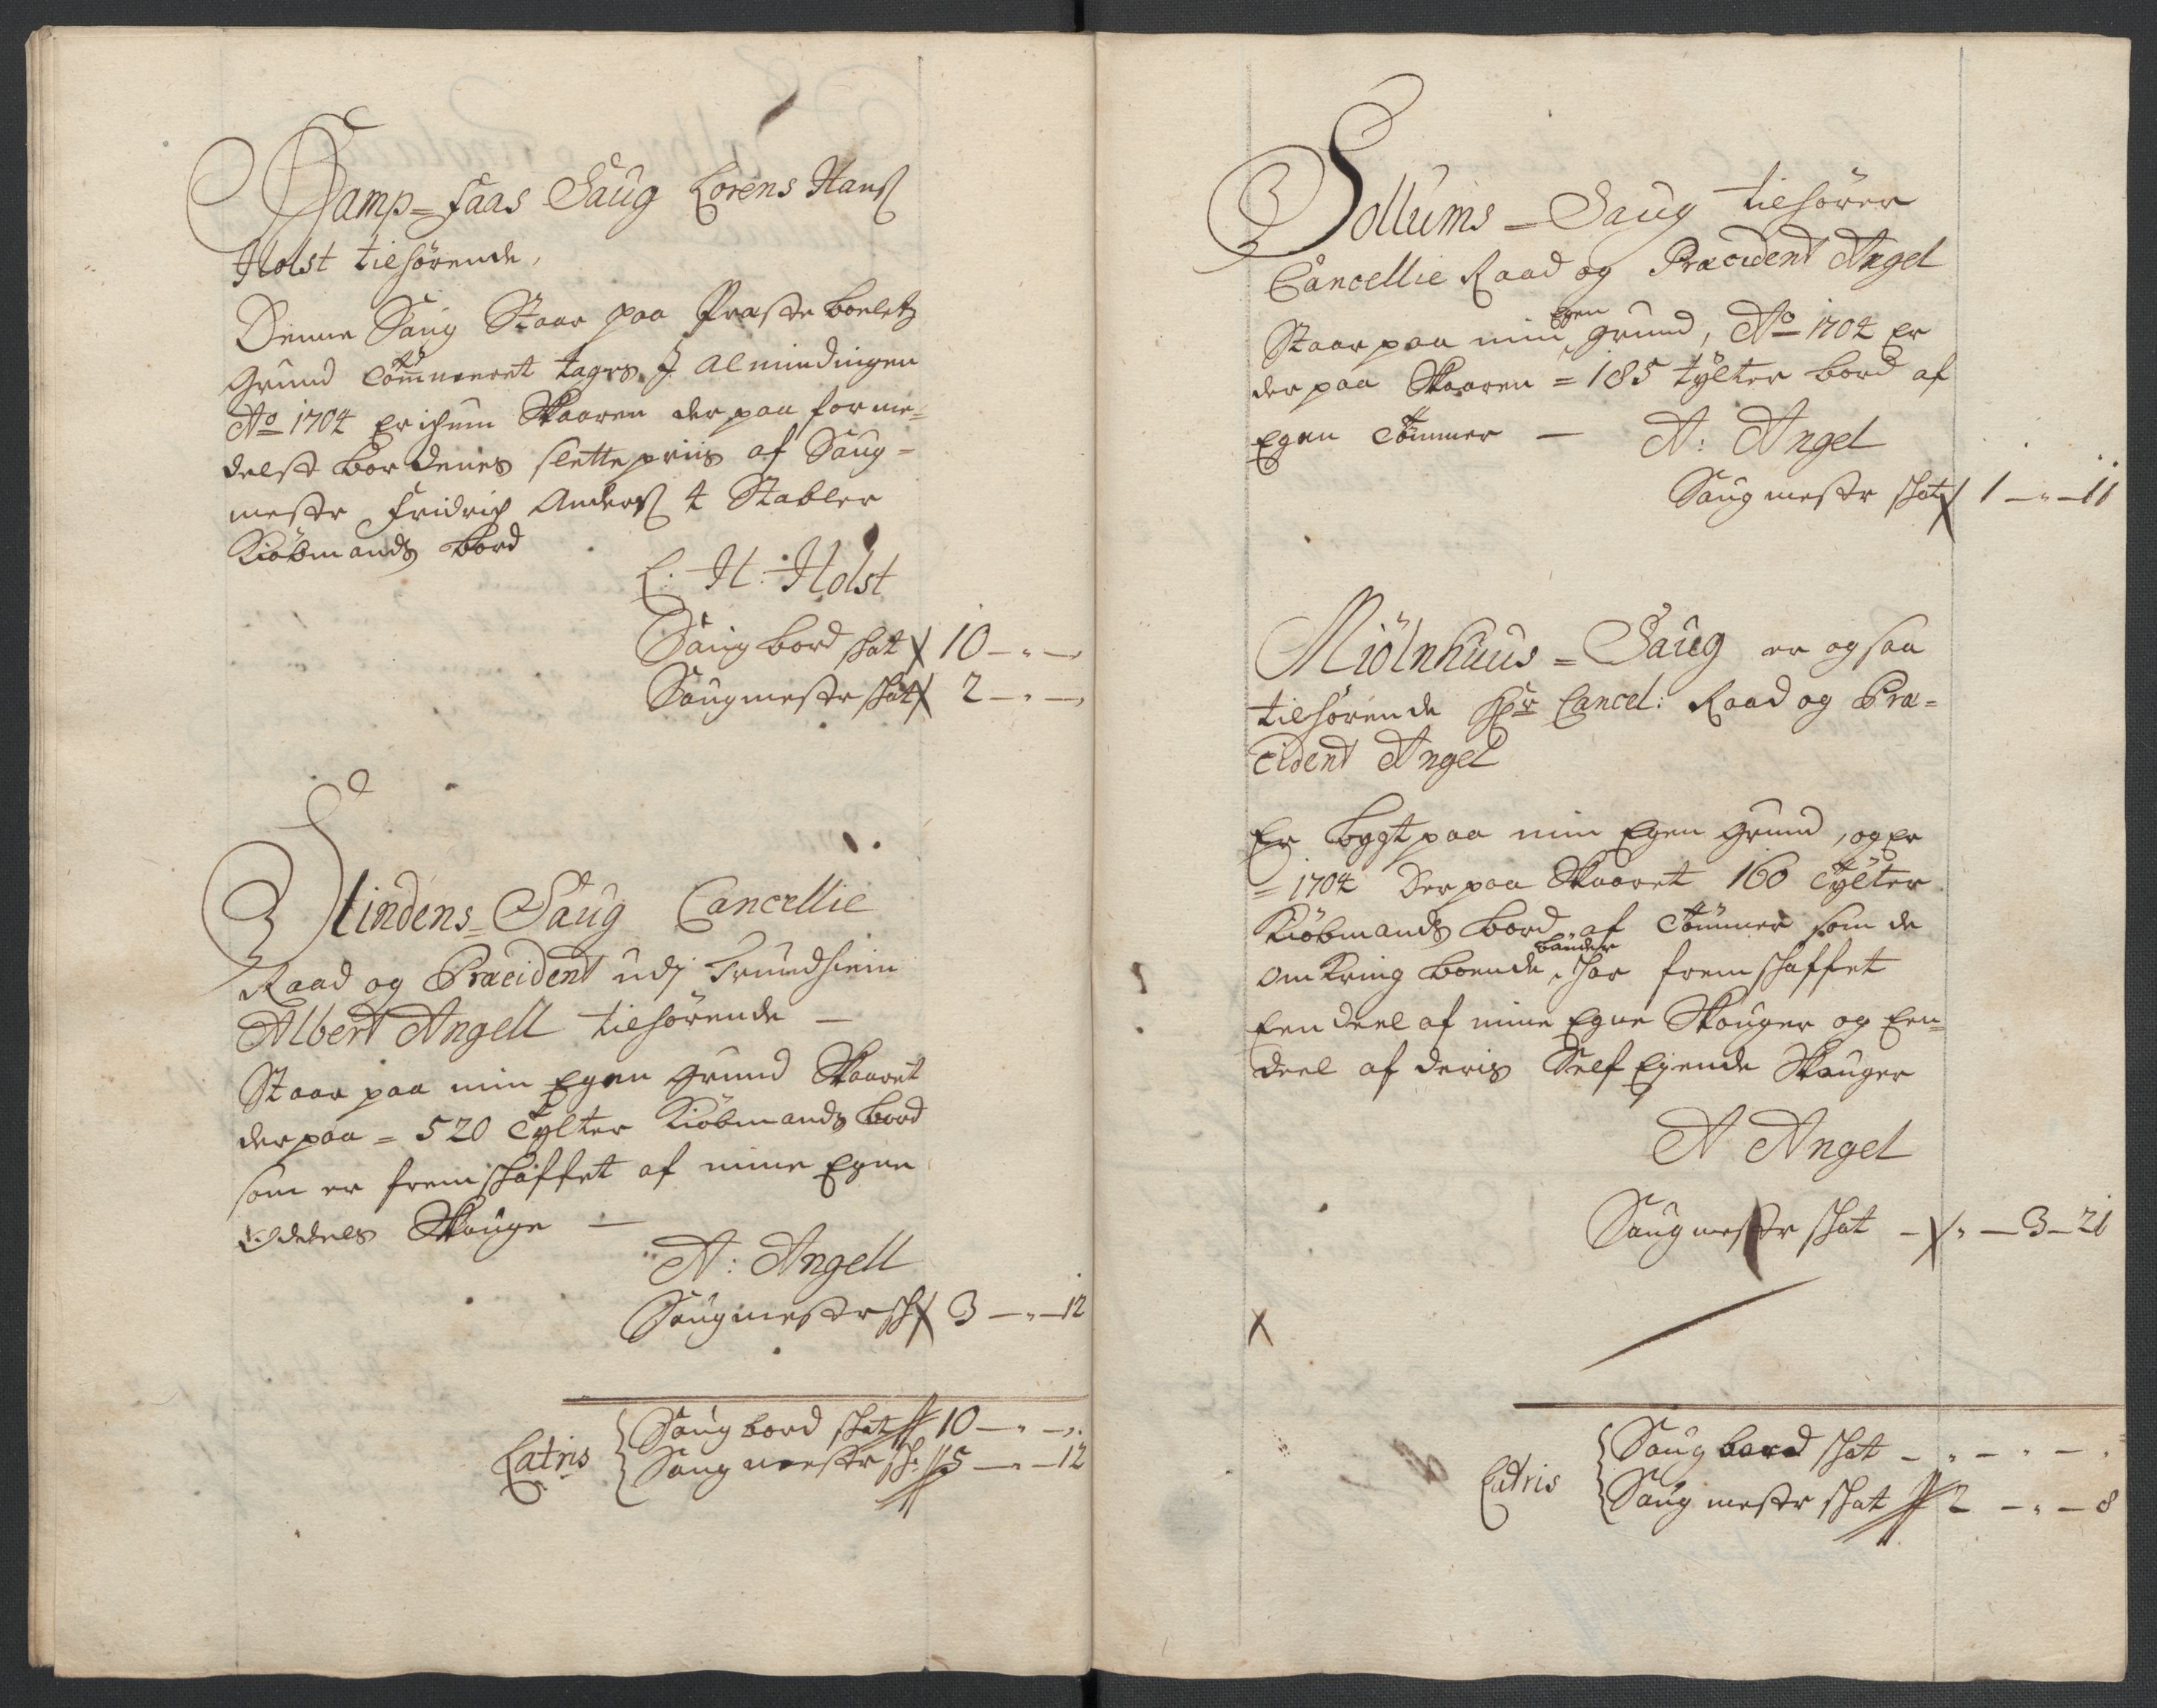 Damp-Saas Saug Lorens Hanß
Holst tilhørende,
Denne Saug Staar paa Præste boeletz
Grund Tømmeret tages J Almindingen
Ao 1704 Er ichun Skaaren der paa forme-
delst bordenes slette priis af Saug-
mester Fridrich Anderß 4 Stabler
Kiöbmands bord
L: H: Holst
Saug bord skat 10 - " -
Saugmester skat 2 - " -
Stindens-Saug Cancellie
Raad og Præcident udj Trundhiem
Albert Angell tilhørende -
Staar paa min Egen grund Skaaret
der paa = 520 Tylter Kiöbmands bord
som er fremskaffet af mine Egne
Oddels Skouge -
A: Angell
Saugmester sk 3 - " - 12
Latris
Saug bord skat 10 - " -
Saug mester sk: 5 - " - 12
Sollums-Saug tilhører
Cancellie Raad og Præcident Angel
Staar paa min egen grund, Ao 1704 Er
der paa Skaaren = 185 tylter bord af
Egen Tømmer - A: Angel
Saug mester skat 1 - " - 11
Miölnhuus-Saug er og saa
tilhørende Hr Cancel: Raad og Præ-
cident Angel
Er bygt paa min Egen grund, og er
= 1704 Der paa Skaaret 160 Tylter
Kiöbmands bord af Tømmer som de
omkring boende bønder har fremskaffet
Een deel af mine Egne Skouger og Een
deel af deris Self Eyende Skouger
A Angel
Saug mester skat - " - 3 - 21
Latris
Saug bord skat - " - " -
Saug mester skat 2 - " - 8